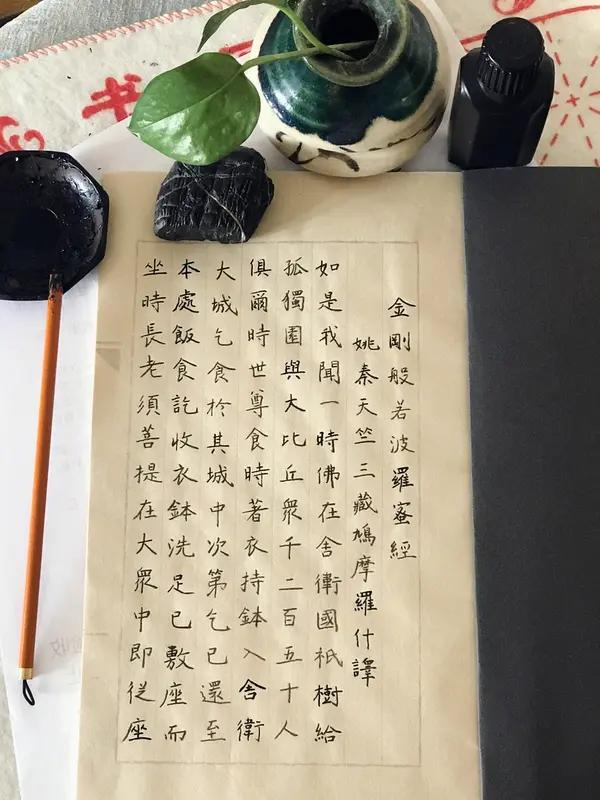 书
金剛般若波羅蜜經
姚秦天竺三藏鳩摩羅什譯
如是我聞一時佛在舍衛國祇樹給
孤獨園與大比丘眾千二百五十人
俱爾時世尊食時著衣持鉢入舍衛
大城乞食於其城中次第乞已還至
本處飯食訖收衣鉢洗足已敷座而
坐時長老須菩提在大眾中即從座